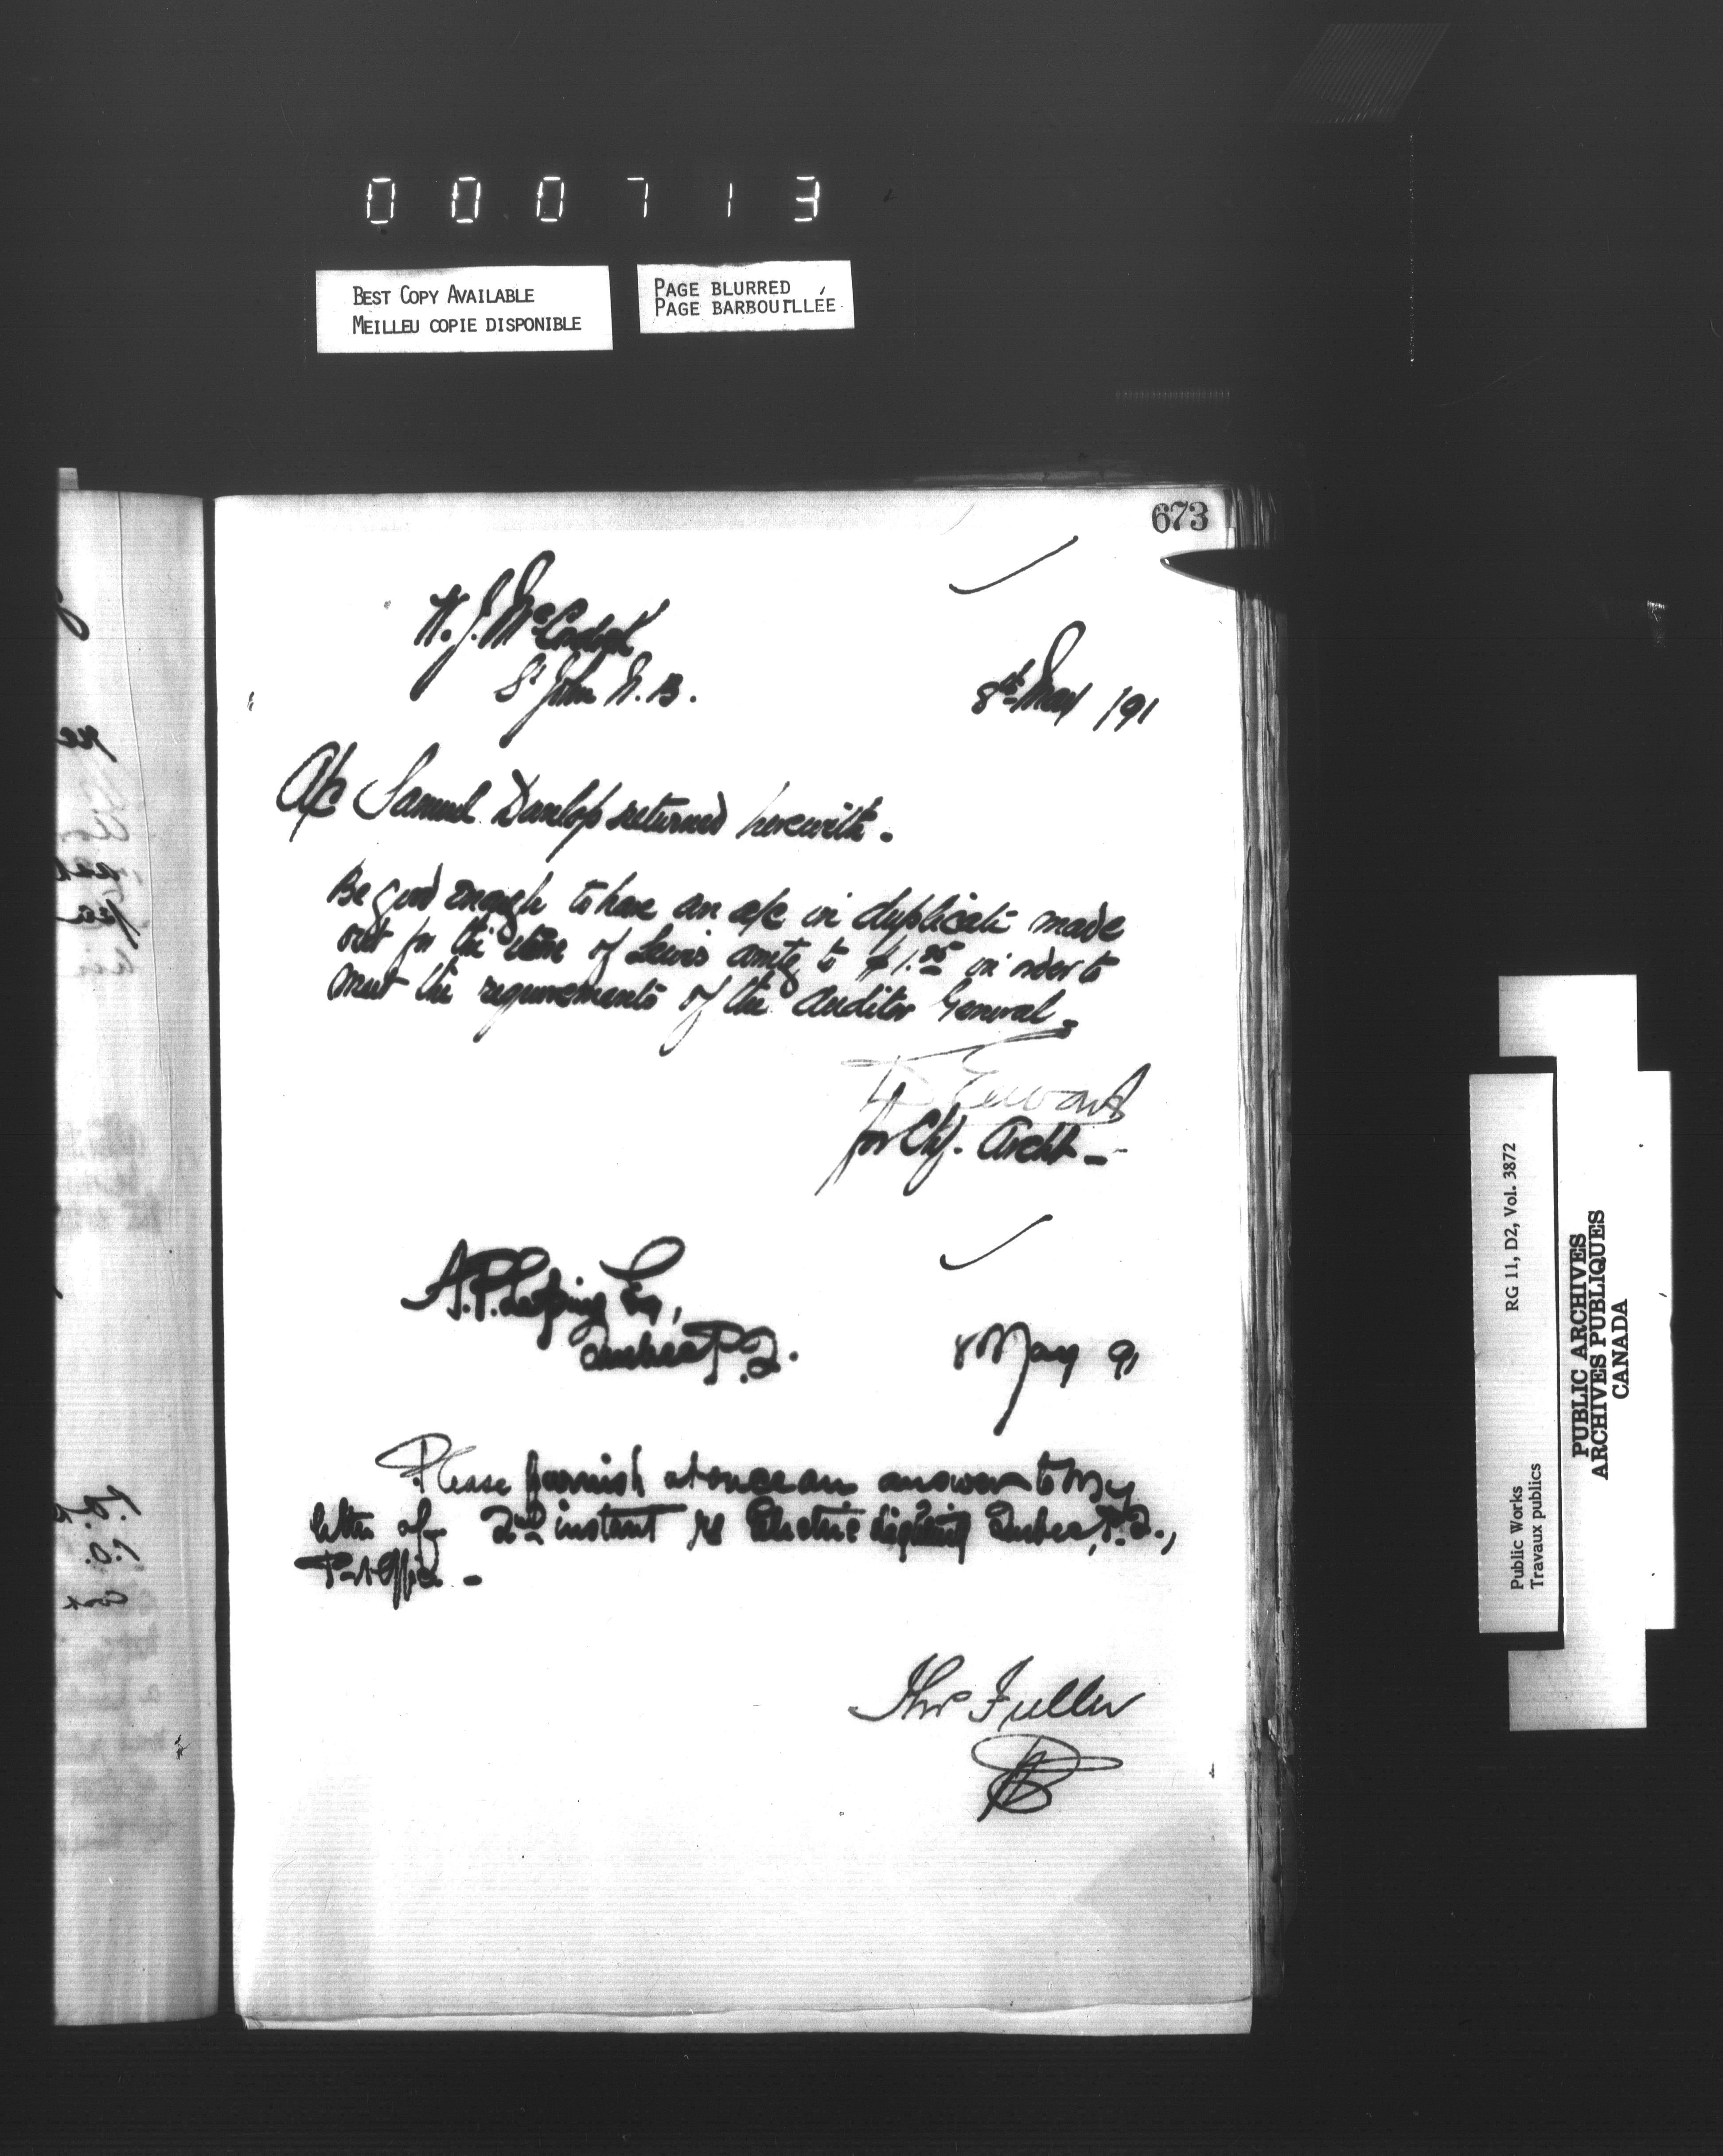 000713
BEST COPY AVAILABLE
MEILLEU COPIE DISPONIBLE
PAGE BLURRED
PAGE BARBOUILLÉE
673
St John N.B.
8th May /91
A/c Samuel Dunlop returned herewith.
Be good enough to have an a/c in duplicate made
out for the item of Lewis amtg to $1.25 in order to
meet the requirements of the Auditor General.
D Ewart
for Chf. Archt -
A. P. Lepine Esq,
Quebec P.Q.
8 May 91
Please furnish at once an answer to my
letter of 2nd instant re Electric lighting Quebec, P.Q.,
Post Office. -
Thos Fuller
RG 11, D2, Vol. 3872
Public Works
Travaux publics
PUBLIC ARCHIVES
ARCHIVES PUBLIQUES
CANADA